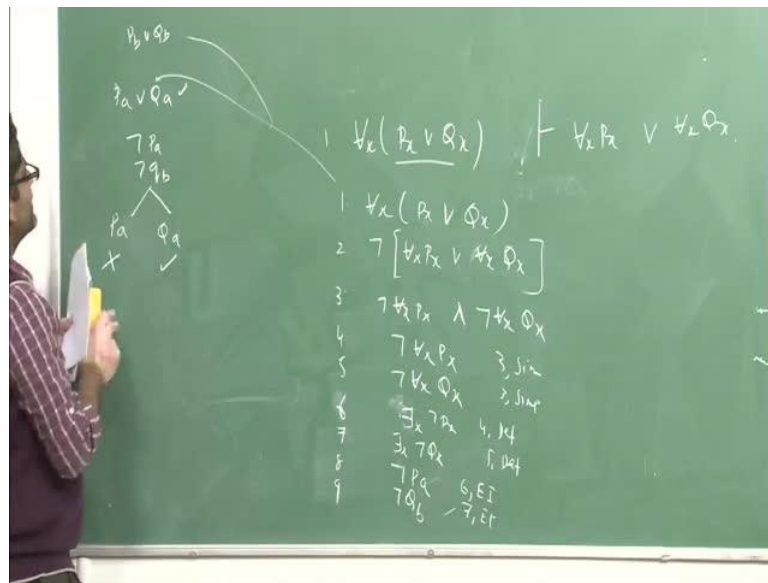 Pb ∨ Qb
Pa ∨ Qa ✓
¬Pa
¬qb
Pa Qa
× ✓
1 ∀x(Px ∨ Qx) ⊢ ∀xPx ∨ ∀xQx.
1 ∀x(Px ∨ Qx)
2 ¬[∀xPx ∨ ∀xQx]
3 ¬∀xPx ∧ ¬∀xQx
4 ¬∀xPx 3, Sim
5 ¬∀xQx 3, Simp
6 ∃x¬Px 4, Def
7 ∃x¬Qx 5, Def
8 ¬Pa 6, EI
9 ¬Qb 7, EI